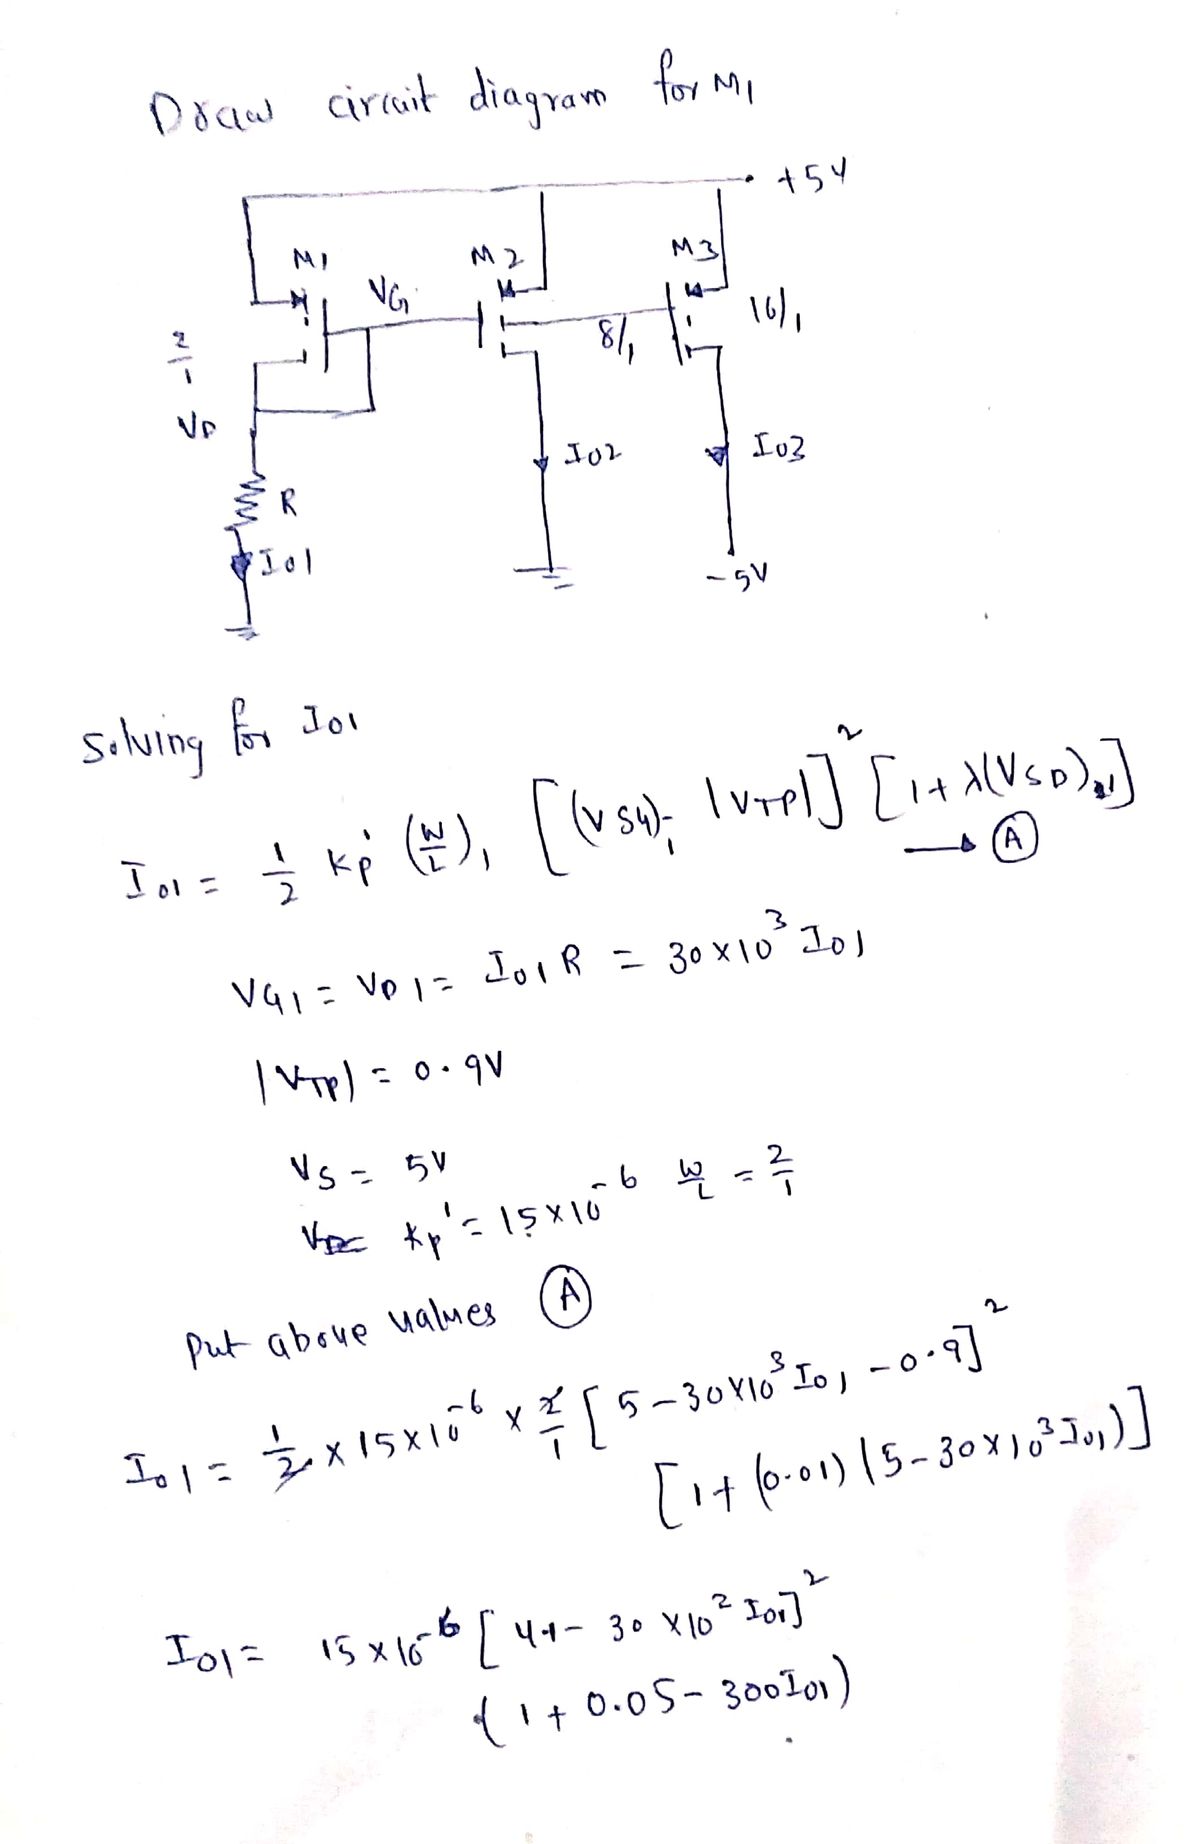 Draw circuit diagram for M1
+5V
M1
M2
M3
VG
2/1
8/1
16/1
VD
R
I01
I02
I03
-5V
Solving for I01
I01 = 1/2 Kp' (W/L)1 [(VSG)1 - |VTP|]² [1 + λ(VSD)1] → (A)
VG1 = VD1 = I01 R = 30 × 10³ I01
|VTP| = 0.9V
VS = 5V
Kp' = 15 × 10⁻⁶ W/L = 2/1
Put above values (A)
I01 = 1/2 × 15 × 10⁻⁶ × 2/1 [5 - 30 × 10³ I01 - 0.9]²
[1 + (0.01) (5 - 30 × 10³ I01)]
I01 = 15 × 10⁻⁶ [4.1 - 30 × 10² I01]²
(1 + 0.05 - 300 I01)